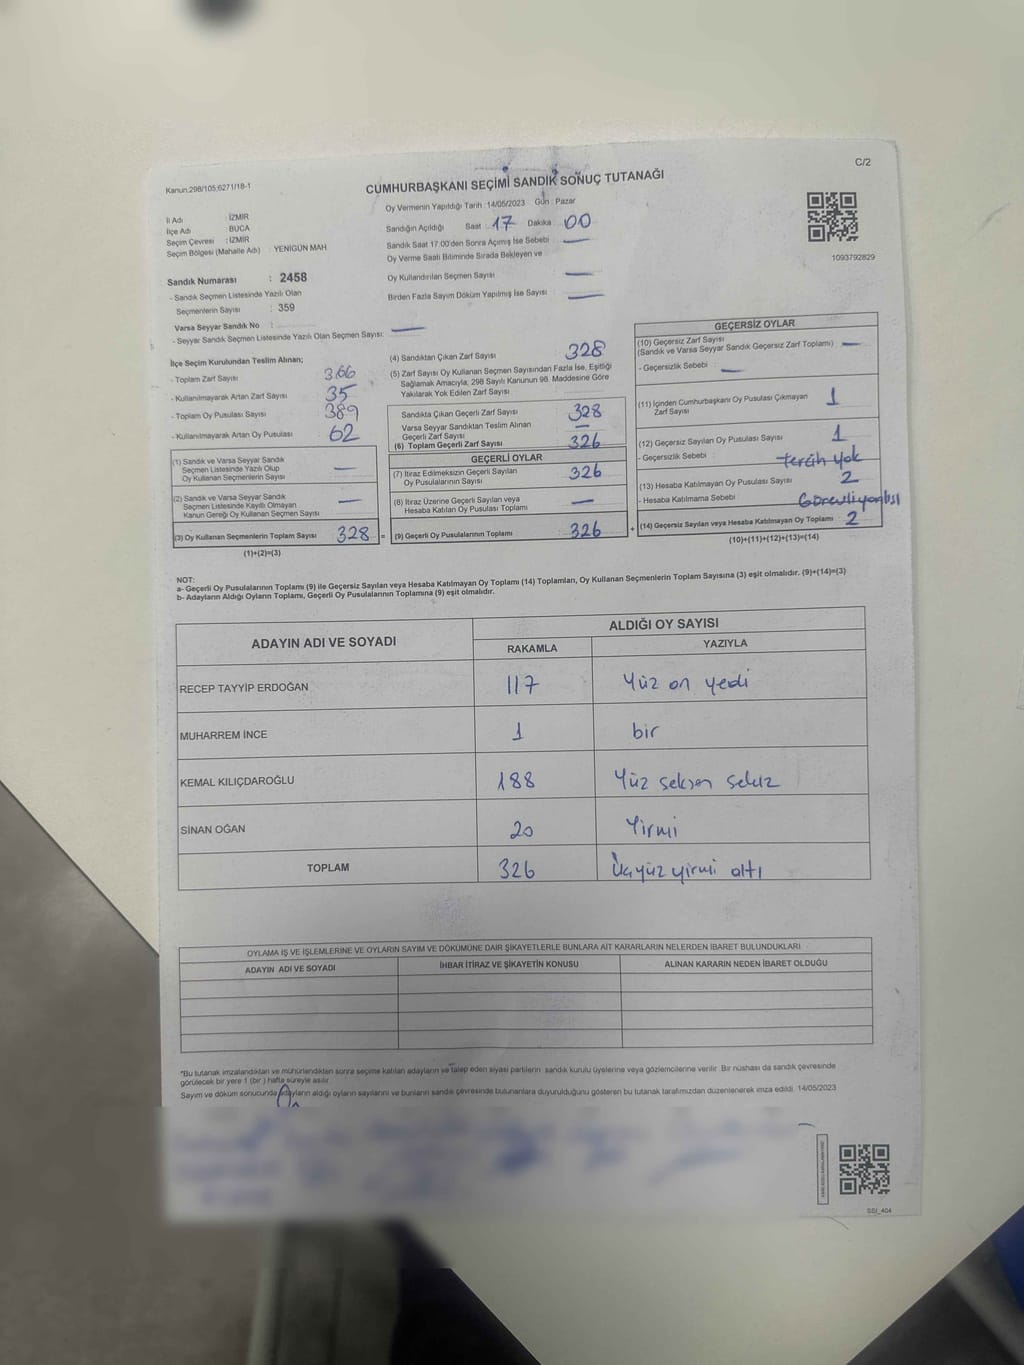 Kanun.298/105;6271/18-1
C/2
CUMHURBAŞKANI SEÇİMİ SANDIK SONUÇ TUTANAĞI
Oy Vermenin Yapıldığı Tarih : 14/05/2023 Gün : Pazar
İl Adı : İZMİR
İlçe Adı : BUCA
Seçim Çevresi : İZMİR
Seçim Bölgesi (Mahalle Adı) : YENİGÜN MAH
Sandık Numarası : 2458
- Sandık Seçmen Listesinde Yazılı Olan
Seçmenlerin Sayısı : 359
Varsa Seyyar Sandık No :
- Seyyar Sandık Seçmen Listesinde Yazılı Olan Seçmen Sayısı: —
Sandığın Açıldığı Saat : 17 Dakika : 00
Sandık Saat 17.00'den Sonra Açılmış İse Sebebi —
Oy Verme Saati Bitiminde Sırada Bekleyen ve
Oy Kullandırılan Seçmen Sayısı —
Birden Fazla Sayım Döküm Yapılmış İse Sayısı —
1093792829
İlçe Seçim Kurulundan Teslim Alınan;
- Toplam Zarf Sayısı 366
- Kullanılmayarak Artan Zarf Sayısı 35
- Toplam Oy Pusulası Sayısı 389
- Kullanılmayarak Artan Oy Pusulası 62
(1) Sandık ve Varsa Seyyar Sandık
Seçmen Listesinde Yazılı Olup
Oy Kullanan Seçmenlerin Sayısı —
(2) Sandık ve Varsa Seyyar Sandık
Seçmen Listesinde Kayıtlı Olmayan
Kanun Gereği Oy Kullanan Seçmen Sayısı —
(3) Oy Kullanan Seçmenlerin Toplam Sayısı 328 =
(1)+(2)=(3)
(4) Sandıktan Çıkan Zarf Sayısı 328
(5) Zarf Sayısı Oy Kullanan Seçmen Sayısından Fazla İse, Eşitliği
Sağlamak Amacıyla, 298 Sayılı Kanunun 98. Maddesine Göre
Yakılarak Yok Edilen Zarf Sayısı
Sandıkta Çıkan Geçerli Zarf Sayısı 328
Varsa Seyyar Sandıktan Teslim Alınan
Geçerli Zarf Sayısı —
(6) Toplam Geçerli Zarf Sayısı 326
GEÇERLİ OYLAR
(7) İtiraz Edilmeksizin Geçerli Sayılan
Oy Pusulalarının Sayısı 326
(8) İtiraz Üzerine Geçerli Sayılan veya
Hesaba Katılan Oy Pusulası Toplamı —
(9) Geçerli Oy Pusulalarının Toplamı 326 +
GEÇERSİZ OYLAR
(10) Geçersiz Zarf Sayısı
(Sandık ve Varsa Seyyar Sandık Geçersiz Zarf Toplamı) —
- Geçersizlik Sebebi —
(11) İçinden Cumhurbaşkanı Oy Pusulası Çıkmayan
Zarf Sayısı 1
(12) Geçersiz Sayılan Oy Pusulası Sayısı 1
- Geçersizlik Sebebi tercih yok
(13) Hesaba Katılmayan Oy Pusulası Sayısı 2
- Hesaba Katılmama Sebebi
(14) Geçersiz Sayılan veya Hesaba Katılmayan Oy Toplamı 2
(10)+(11)+(12)+(13)=(14)
NOT:
a- Geçerli Oy Pusulalarının Toplamı (9) ile Geçersiz Sayılan veya Hesaba Katılmayan Oy Toplamı (14) Toplamları, Oy Kullanan Seçmenlerin Toplam Sayısına (3) eşit olmalıdır. (9)+(14)=(3)
b- Adayların Aldığı Oyların Toplamı, Geçerli Oy Pusulalarının Toplamına (9) eşit olmalıdır.
ADAYIN ADI VE SOYADI
ALDIĞI OY SAYISI
RAKAMLA YAZIYLA
RECEP TAYYİP ERDOĞAN 117 Yüz on yedi
MUHARREM İNCE 1 bir
KEMAL KILIÇDAROĞLU 188 Yüz seksen sekiz
SİNAN OĞAN 20 Yirmi
TOPLAM 326 Üçyüz yirmi altı
OYLAMA İŞ VE İŞLEMLERİNE VE OYLARIN SAYIM VE DÖKÜMÜNE DAİR ŞİKAYETLERLE BUNLARA AİT KARARLARIN NELERDEN İBARET BULUNDUKLARI
ADAYIN ADI VE SOYADI İHBAR İTİRAZ VE ŞİKAYETİN KONUSU ALINAN KARARIN NEDEN İBARET OLDUĞU
*Bu tutanak imzalandıktan ve mühürlendikten sonra seçime katılan adayların ve talep eden siyasi partilerin sandık kurulu üyelerine veya gözlemcilerine verilir. Bir nüshası da sandık çevresinde
görülecek bir yere 1 (bir ) hafta süreyle asılır.
Sayım ve döküm sonucunda adayların aldığı oyların sayılarını ve bunların sandık çevresinde bulunanlara duyurulduğunu gösteren bu tutanak tarafımızdan düzenlenerek imza edildi. 14/05/2023
SSI_404